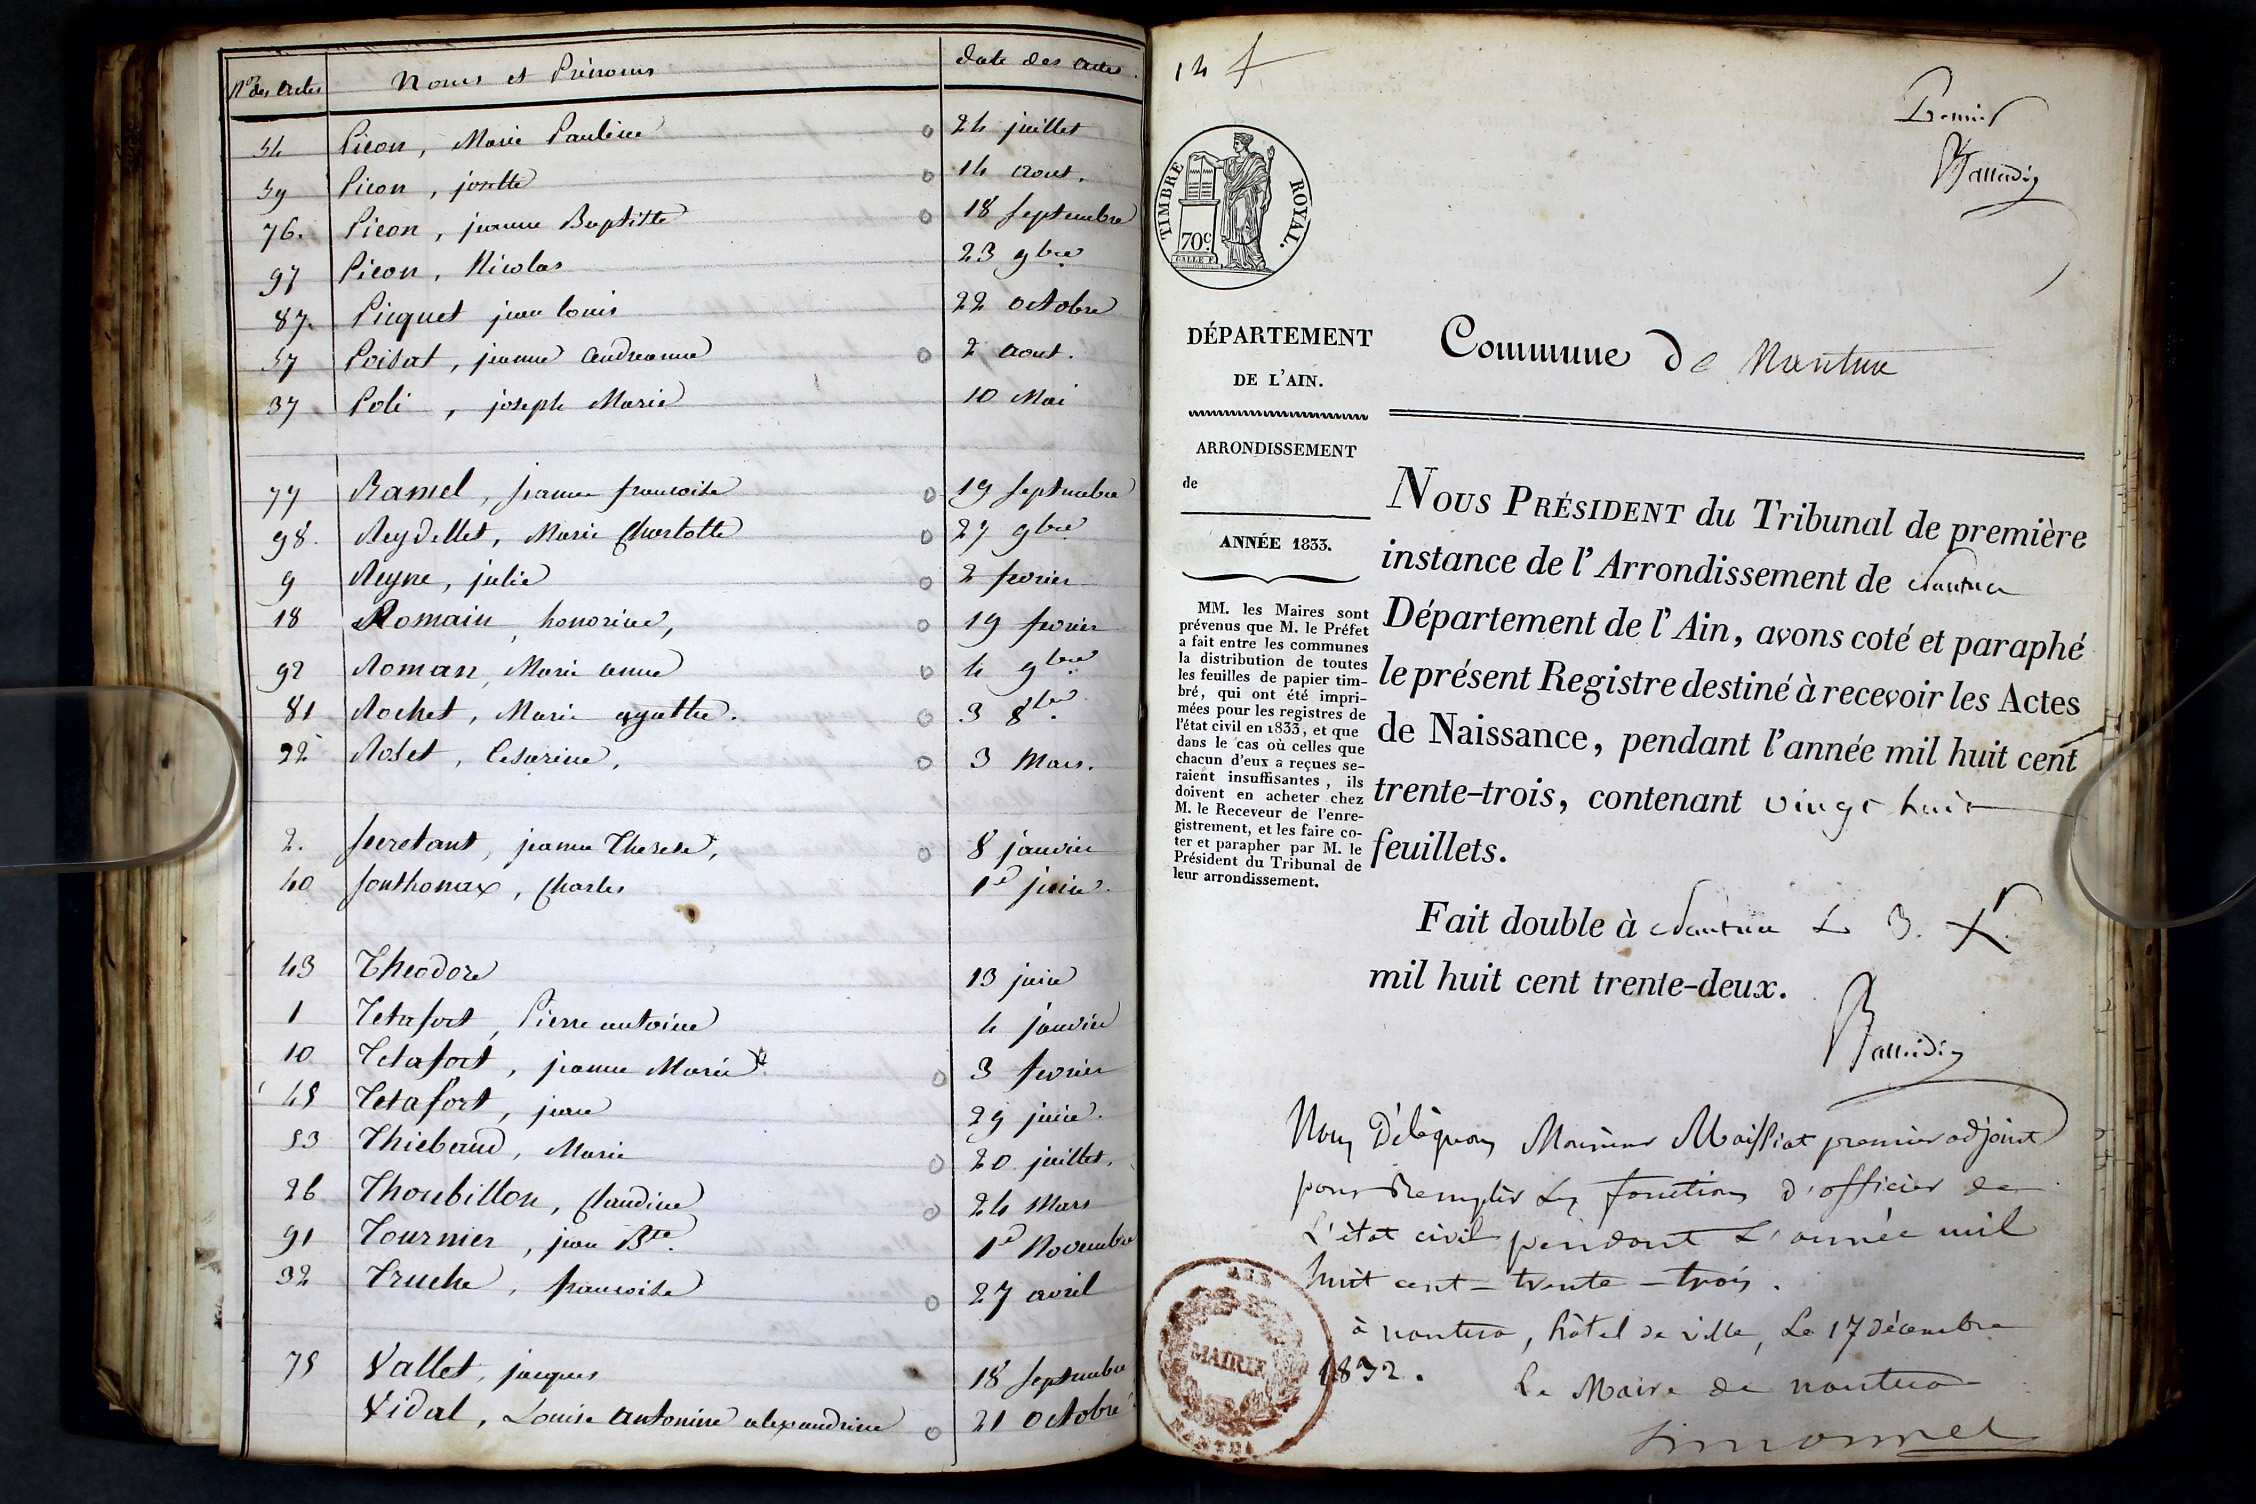 Nos des actes Noms et Prénoms date des actes.
54 Picon, Marie Pauline 24 juillet
59 Picon, josette 14 aout.
76. Picon, jeanne Baptiste 18 septembre
97 Picon, Nicolas 23 9bre
87. Picquet jean louis 22 octobre
57 Poisat, jeanne andreanne 2 aout.
37 Poli, joseph Marie 10 Mai
77 Ramel, jeanne francoise 19 septembre
98. Reydellet, Marie Charlotte 27 9bre
9 Reyne, julie 2 fevrier
18 Romain, honorine, 19 fevrier
92 Roman, Marie anne 4 9bre
81 Rochet, Marie agathe. 3 8bre.
22 Roset, Cesarine, 3 Mars.
2. Secretant, jeanne Therese, 8 janvier
40 Sonthonax, Charles 1er juin.
43 Théodore 13 juin
1 Tetafort, Pierre antoine 4 janvier
10 Tetafort, jeanne Marie 3 fevrier
45 Tetafort, jean 29 juin.
53 Thiebaud, Marie 20 juillet.
26 Thoubillon, Claudine 24 Mars
91 Tournier, jean Bte. 1er Novembre
32 Truche, francoise 27 avril
75 Vallet, jacques 18 septembre
Vidal, Louise antonine alexandrine 21 octobre
14 f
Premier
TIMBRE ROYAL.
70c
DÉPARTEMENT
DE L'AIN.
Commune de Nantua
ARRONDISSEMENT
de
ANNÉE 1833.
MM. les Maires sont
prévenus que M. le Préfet
a fait entre les communes
la distribution de toutes
les feuilles de papier tim-
bré, qui ont été impri-
mées pour les registres de
l'état civil en 1833, et que
dans le cas où celles que
chacun d'eux a reçues se-
raient insuffisantes, ils
doivent en acheter chez
M. le Receveur de l'enre-
gistrement, et les faire co-
ter et parapher par M. le
Président du Tribunal de
leur arrondissement.
NOUS PRÉSIDENT du Tribunal de première
instance de l'Arrondissement de Nantua
Département de l'Ain, avons coté et paraphé
le présent Registre destiné à recevoir les Actes
de Naissance, pendant l'année mil huit cent
trente-trois, contenant vingt huit
feuillets.
Fait double à Nantua Le 3. Xr
mil huit cent trente-deux.
Nous Déléguons Monsieur Maissiat premier adjoint
pour Remplir Les fonctions d'officier de
L'état civil pendant L'année mil
huit cent-trente-trois.
à nantua, hôtel de ville, Le 17 décembre
1832.
Le Maire de nantua
AIN
MAIRIE
NANTUA